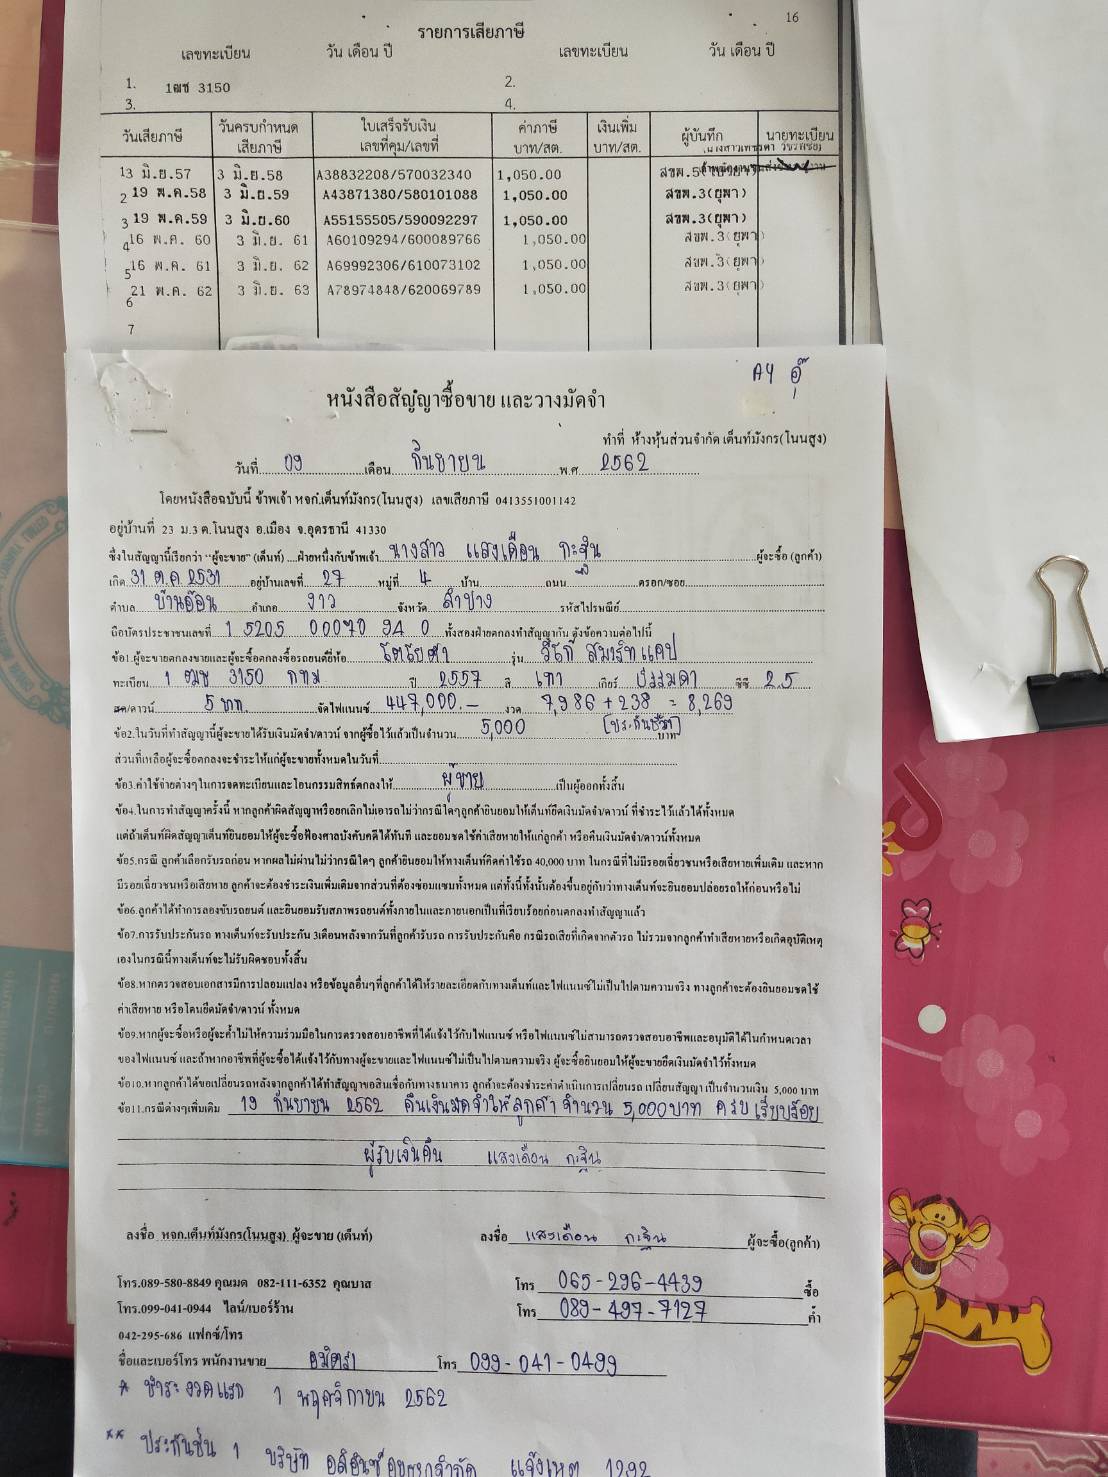 16
รายการเสียภาษี
เลขทะเบียน วัน เดือน ปี เลขทะเบียน วัน เดือน ปี
1. 1ฒช 3150 2.
3. 4.
วันเสียภาษี วันครบกำหนดเสียภาษี ใบเสร็จรับเงิน เลขที่คุม/เลขที่ ค่าภาษี บาท/สต. เงินเพิ่ม บาท/สต. ผู้บันทึก นายทะเบียน
13 มิ.ย.57 3 มิ.ย.58 A38832208/570032340 1,050.00
2 19 พ.ค.58 3 มิ.ย.59 A43871380/580101088 1,050.00 สขพ.3(ยุพา)
3 19 พ.ค.59 3 มิ.ย.60 A55155505/590092297 1,050.00 สขพ.3(ยุพา)
4 16 พ.ค. 60 3 มิ.ย. 61 A60109294/600089766 1,050.00 สขพ.3(ยุพา)
5 16 พ.ค. 61 3 มิ.ย. 62 A69992306/610073102 1,050.00 สขพ.3(ยุพา)
6 21 พ.ค. 62 3 มิ.ย. 63 A78974848/620069789 1,050.00 สขพ.3(ยุพา)
7
A4 อุ๊
หนังสือสัญญาซื้อขาย และวางมัดจำ
ทำที่ ห้างหุ้นส่วนจำกัด เต็นท์มังกร(โนนสูง)
วันที่ 09 เดือน กันยายน พ.ศ 2562
โดยหนังสือฉบับนี้ ข้าพเจ้า หจก.เต็นท์มังกร(โนนสูง) เลขเสียภาษี 0413551001142
อยู่บ้านที่ 23 ม.3 ต.โนนสูง อ.เมือง จ.อุดรธานี 41330
ซึ่งในสัญญานี้เรียกว่า "ผู้จะขาย" (เต็นท์) ....ฝ่ายหนึ่งกับข้าพเจ้า นางสาว แสงเดือน กะฐิน ผู้จะซื้อ (ลูกค้า)
เกิด 31 ต.ค 2531 อยู่บ้านเลขที่ 27 หมู่ที่ 4 บ้าน ถนน ตรอก/ซอย
ตำบล บ้านอ้อน อำเภอ งาว จังหวัด ลำปาง รหัสไปรษณีย์
ถือบัตรประชาชนเลขที่ 1 5205 00070 94 0 ทั้งสองฝ่ายตกลงทำสัญญากัน ดังข้อความต่อไปนี้
ข้อ1.ผู้จะขายตกลงขายและผู้จะซื้อตกลงซื้อรถยนต์ยี่ห้อ โตโยต้า รุ่น วีโก้ สมาร์ทแคป
ทะเบียน 1 ฒช 3150 กทม ปี 2557 สี เทา เกียร์ ธรรมดา ซีซี 2.5
สด/ดาวน์ 5 บาท. จัดไฟแนนซ์ 447,000.- งวด 7,986 + 238 = 8,269
ข้อ2.ในวันที่ทำสัญญานี้ผู้จะขายได้รับเงินมัดจำ/ดาวน์ จากผู้ซื้อไว้แล้วเป็นจำนวน 5,000 บาท
ส่วนที่เหลือผู้จะซื้อตกลงจะชำระให้แก่ผู้จะขายทั้งหมดในวันที่
ข้อ3.ค่าใช้จ่ายต่างๆในการจดทะเบียนและโอนกรรมสิทธ์ตกลงให้ ผู้ขาย เป็นผู้ออกทั้งสิ้น
ข้อ4.ในการทำสัญญาครั้งนี้ หากลูกค้าผิดสัญญาหรือยกเลิกไม่เอารถไม่ว่ากรณีใดๆลูกค้ายินยอมให้เต็นท์ยึดเงินมัดจำ/ดาวน์ ที่ชำระไว้แล้วได้ทั้งหมด
แต่ถ้าเต็นท์ผิดสัญญาเต็นท์ยินยอมให้ผู้จะซื้อฟ้องศาลบังคับคดีได้ทันที และยอมชดใช้ค่าเสียหายให้แก่ลูกค้า หรือคืนเงินมัดจำ/ดาวน์ทั้งหมด
ข้อ5.กรณี ลูกค้าเลือกรับรถก่อน หากผลไม่ผ่านไม่ว่ากรณีใดๆ ลูกค้ายินยอมให้ทางเต็นท์คิดค่าใช้รถ 40,000 บาท ในกรณีที่ไม่มีรอยเฉี่ยวชนหรือเสียหายเพิ่มเติม และหาก
มีรอยเฉี่ยวชนหรือเสียหาย ลูกค้าจะต้องชำระเงินเพิ่มเติมจากส่วนที่ต้องซ่อมแซมทั้งหมด แต่ทั้งนี้ทั้งนั้นต้องขึ้นอยู่กับว่าทางเต็นท์จะยินยอมปล่อยรถให้ก่อนหรือไม่
ข้อ6.ลูกค้าได้ทำการลองขับรถยนต์ และยินยอมรับสภาพรถยนต์ทั้งภายในและภายนอกเป็นที่เรียบร้อยก่อนตกลงทำสัญญาแล้ว
ข้อ7.การรับประกันรถ ทางเต็นท์จะรับประกัน 3เดือนหลังจากวันที่ลูกค้ารับรถ การรับประกันคือ กรณีรถเสียที่เกิดจากตัวรถ ไม่รวมจากลูกค้าทำเสียหายหรือเกิดอุบัติเหตุ
เองในกรณีนี้ทางเต็นท์จะไม่รับผิดชอบทั้งสิ้น
ข้อ8.หากตรวจสอบเอกสารมีการปลอมแปลง หรือข้อมูลอื่นๆที่ลูกค้าได้ให้รายละเอียดกับทางเต็นท์และไฟแนนซ์ไม่เป็นไปตามความจริง ทางลูกค้าจะต้องยินยอมชดใช้
ค่าเสียหาย หรือโดนยึดมัดจำ/ดาวน์ ทั้งหมด
ข้อ9.หากผู้จะซื้อหรือผู้จะค้ำไม่ให้ความร่วมมือในการตรวจสอบอาชีพที่ได้แจ้งไว้กับไฟแนนซ์ หรือไฟแนนซ์ไม่สามารถตรวจสอบอาชีพและอนุมัติได้ในกำหนดเวลา
ของไฟแนนซ์ และถ้าหากอาชีพที่ผู้จะซื้อได้แจ้งไว้กับทางผู้จะขายและไฟแนนซ์ไม่เป็นไปตามความจริง ผู้จะซื้อยินยอมให้ผู้จะขายยึดเงินมัดจำไว้ทั้งหมด
ข้อ10.หากลูกค้าได้ขอเปลี่ยนรถหลังจากลูกค้าได้ทำสัญญาขอสินเชื่อกับทางธนาคาร ลูกค้าจะต้องชำระค่าดำเนินการเปลี่ยนรถ เปลี่ยนสัญญา เป็นจำนวนเงิน 5,000 บาท
ข้อ11.กรณีต่างๆเพิ่มเติม 19 กันยายน 2562 คืนเงินมัดจำให้ลูกค้า จำนวน 5,000บาท ครบเรียบร้อย
ผู้รับเงินคืน แสงเดือน กะฐิน
ลงชื่อ หจก.เต็นท์มังกร(โนนสูง) ผู้จะขาย (เต็นท์) ลงชื่อ แสงเดือน กะฐิน ผู้จะซื้อ(ลูกค้า)
โทร.089-580-8849 คุณมด 082-111-6352 คุณบาส โทร 065-296-4439 ซื้อ
โทร.099-041-0944 ไลน์/เบอร์ร้าน โทร 089-497-7127 ค้ำ
042-295-686 แฟกซ์/โทร
ชื่อและเบอร์โทร พนักงานขาย โทร 099-041-0499
* ชำระงวดแรก 1 พฤศจิกายน 2562
** ประกันชั้น 1 บริษัท แจ้งเหตุ 1292